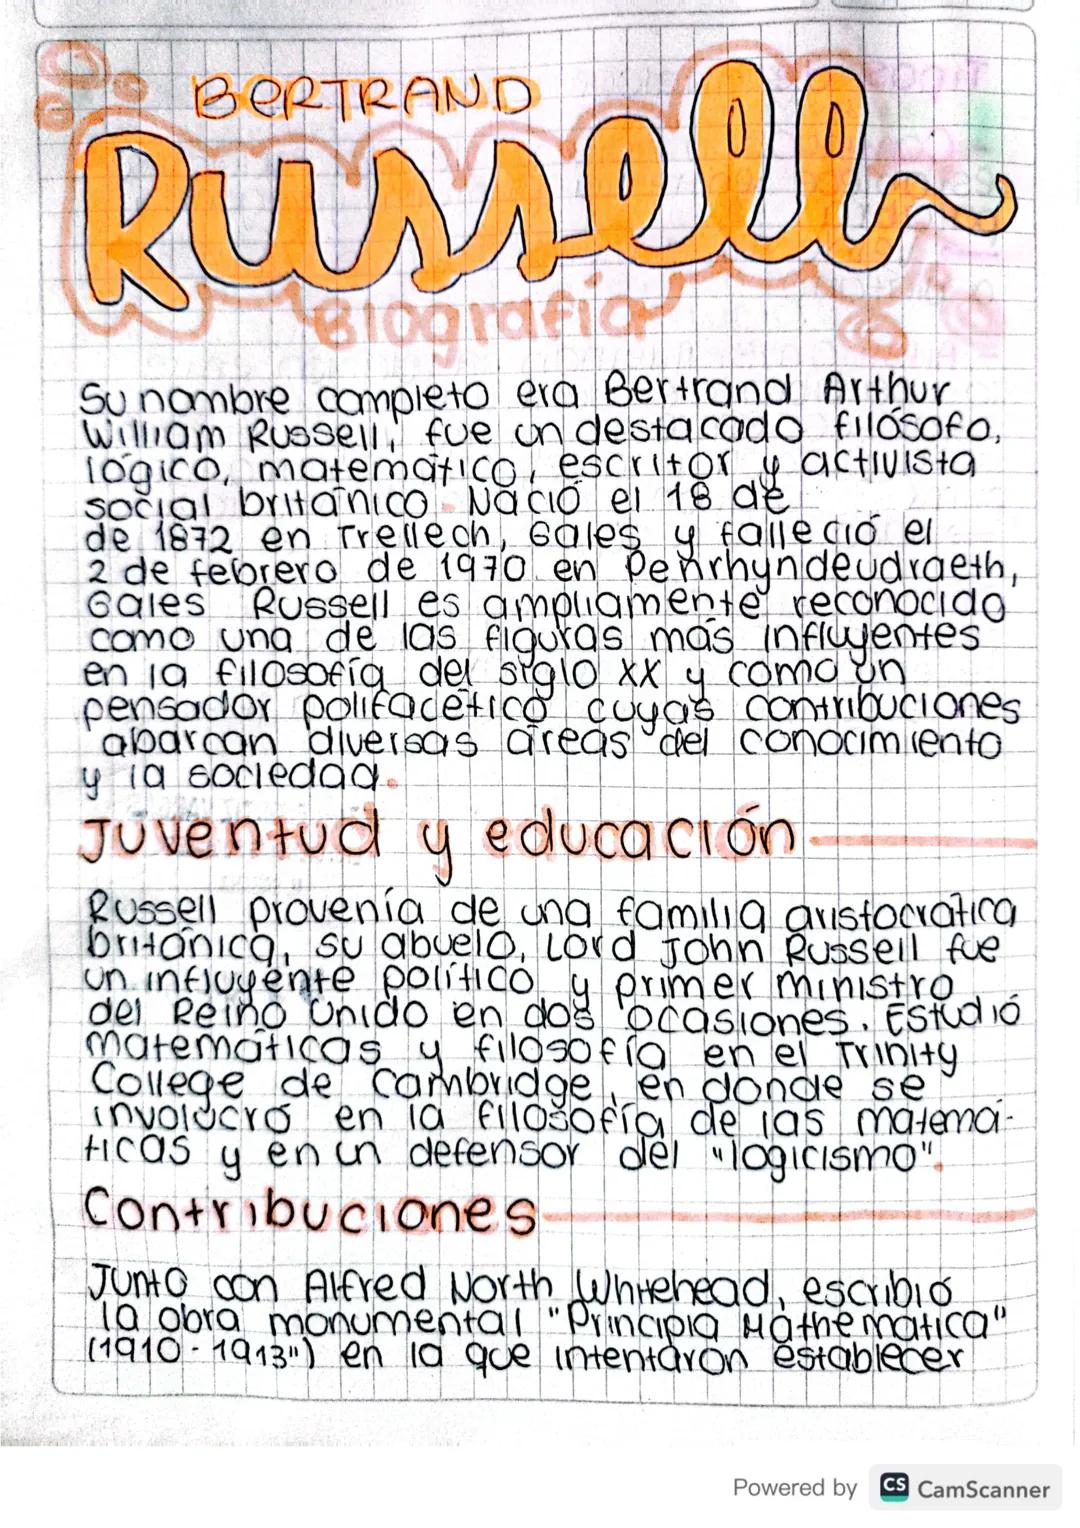 BERTRAND
Russell
Biografía
Su nombre completo era Bertrand Arthur
William Russell, fue un destacado filósofo,
lógico, matemático, escritor y activista
social británico. Nació el 18 de
de 1872 en Trellech, Gales y falleció el
2 de febrero de 1970 en Penrhyndeudraeth,
Gales Russell es ampliamente reconocido
como una de las figuras más influyentes
en la filosofía del siglo XX y como un
pensador polifacético cuyas contribuciones
abarcan diversas áreas del conocimiento
y la sociedad.
Juventud y educación
Russell provenía de una familia aristocrática
británica, su abuelo, Lord John Russell fue
un influyente político y primer ministro
del Reino Unido en dos ocasiones. Estudió
matemáticas y filosofía en el Trinity
College de Cambridge, en donde se
involucró en la filosofía de las matemá-
ticas y en un defensor del "logicismo".
Contribuciones
Junto con Alfred North Whitehead, escribió
la obra monumental "Principia Mathematica"
(1910-1913") en la que intentaron establecer
Powered by CS CamScanner